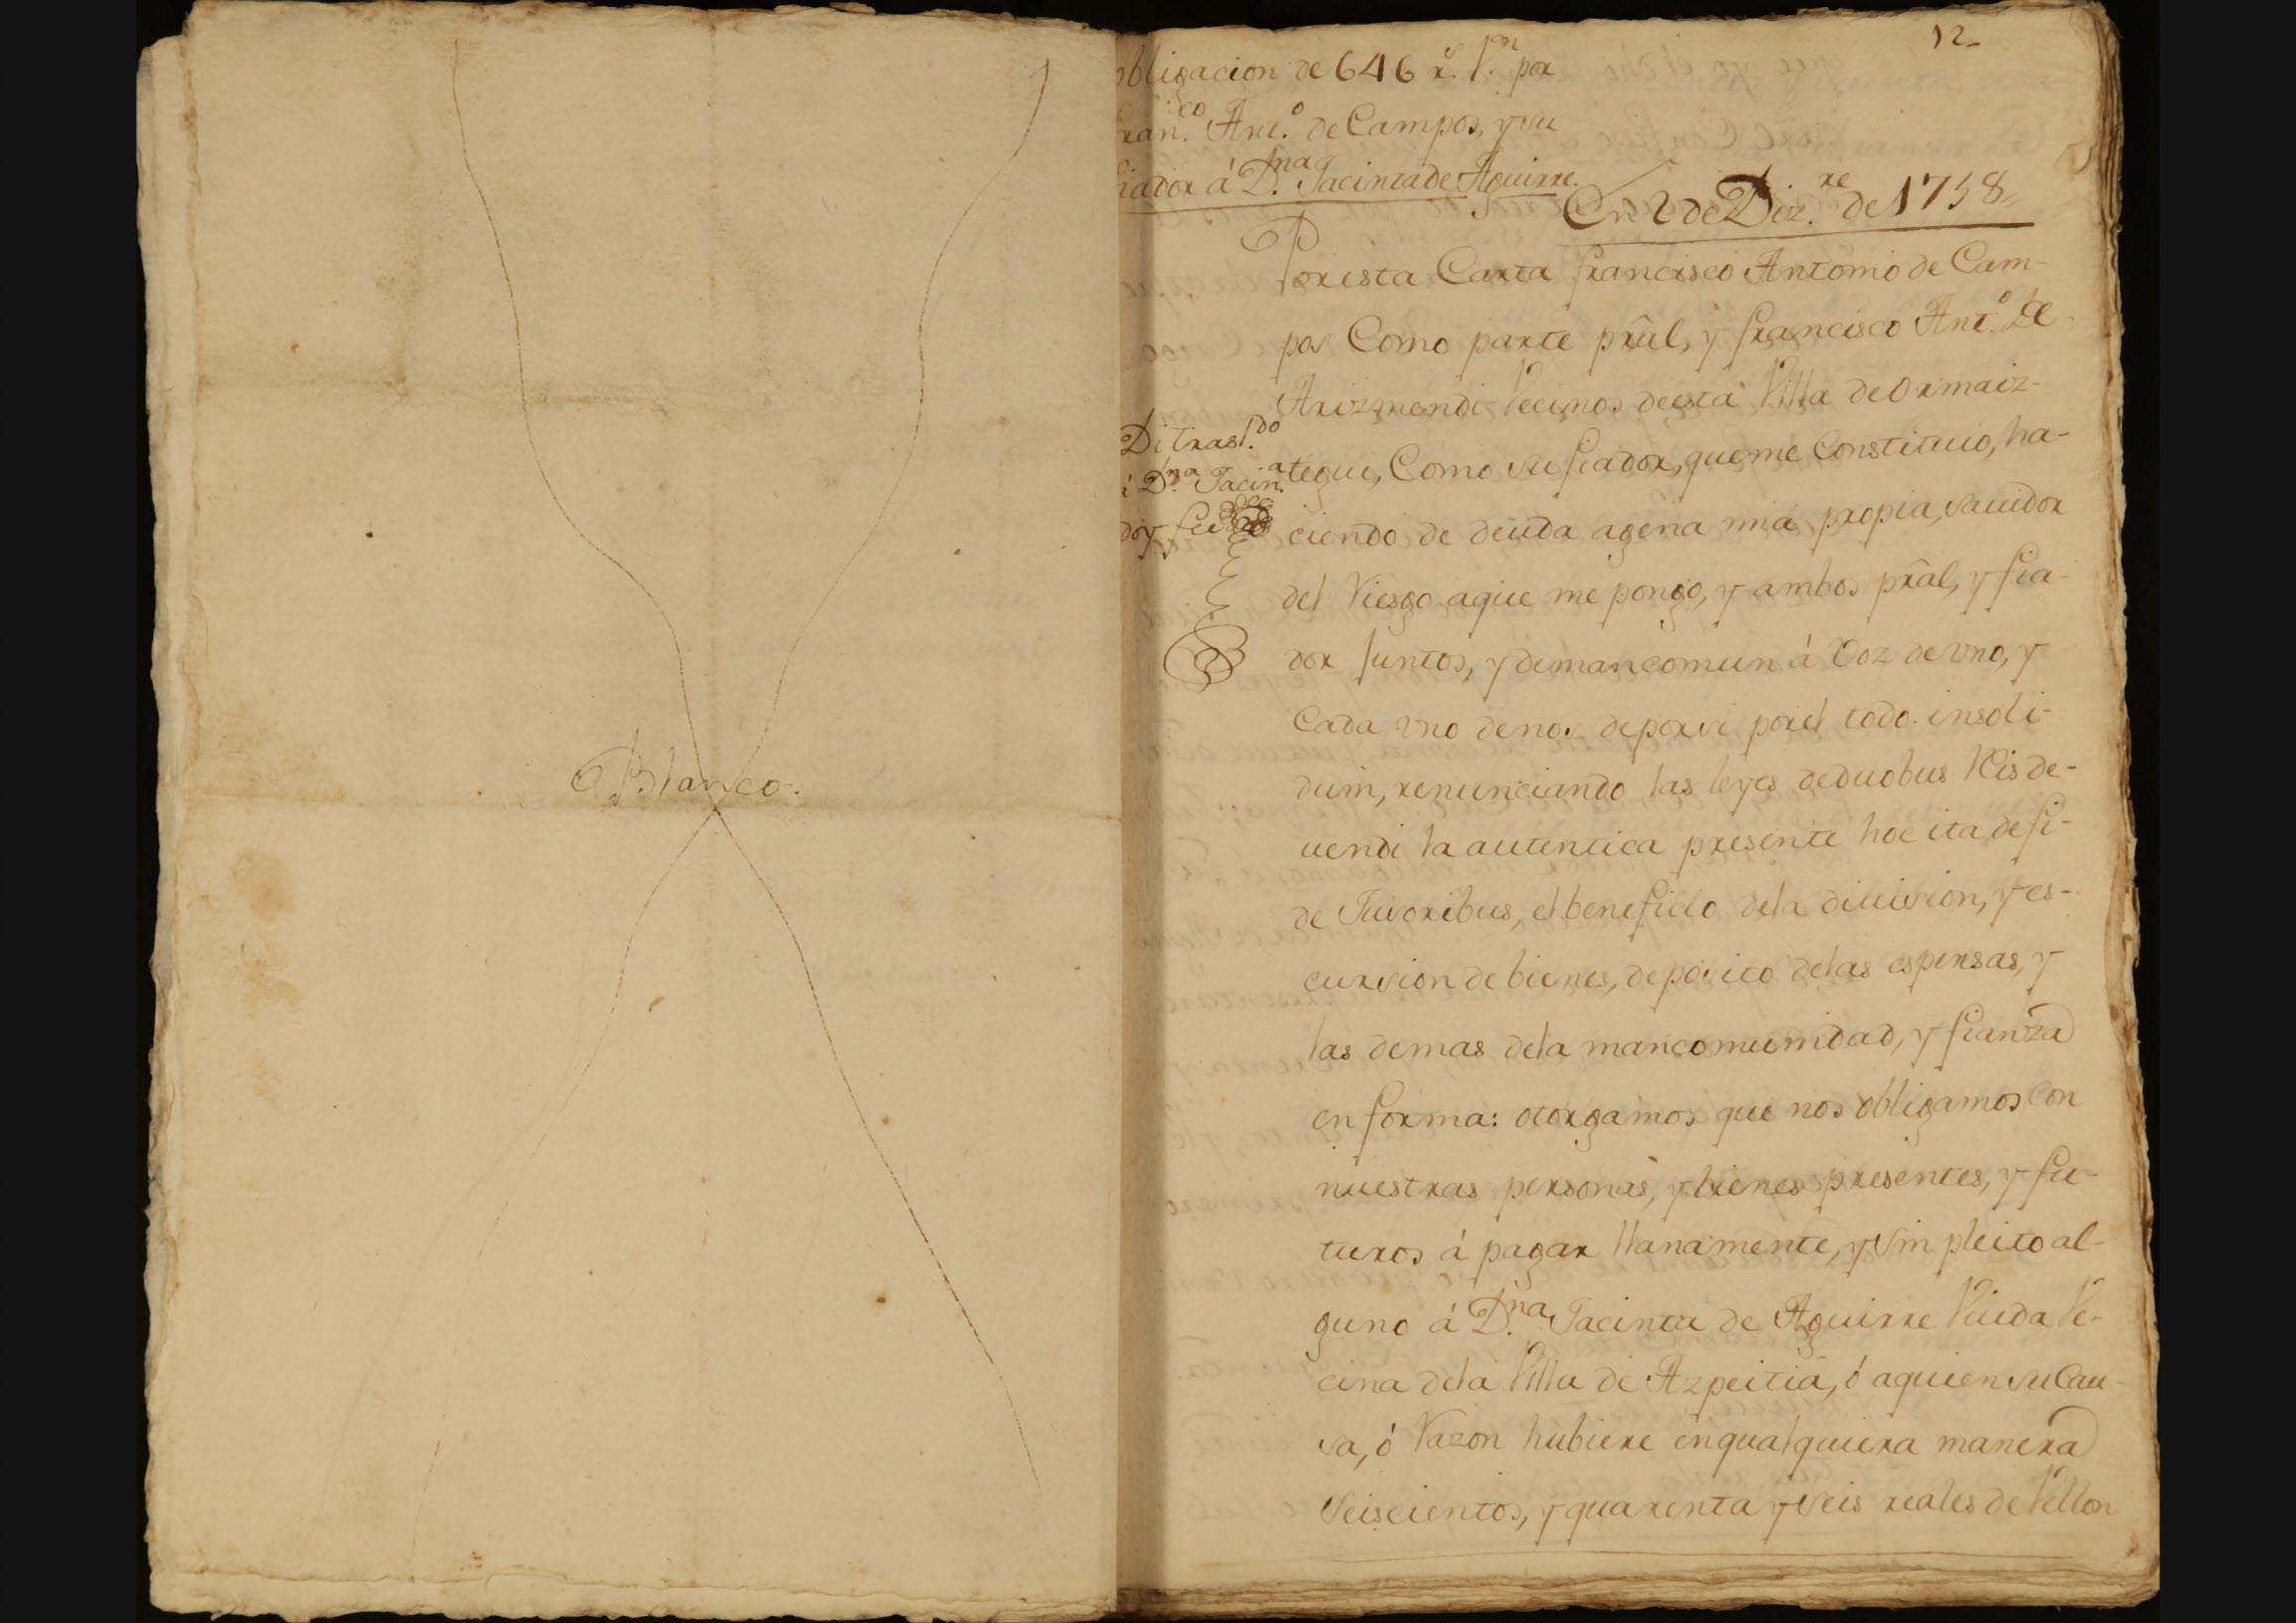 Blanco.
12
obligacion de 646 rˢ. Vᵒⁿ. por
Fran.ᶜᵒ Ant.º de Campos, y su
fiador á D.ⁿᵃ Jacinta de Aguirre.
En 2 de Diz.ʳᵉ de 1758
Por esta Carta francisco Antonio de Cam-
pos Como parte prãl, y francisco Ant.º de
Arizmendi Vecinos de esta Villa de Ormaiz-
tegui, Como su fiador, que me Constituio, ha-
ciendo de deuda agena mia propia, sauidor
del Riesgo aque me pongo, y ambos prãl, y fia-
dor Juntos, y demancomun á Voz de vno, y
Cada vno denos deporsi porel todo insoli-
dum, renunciando las leyes deduobus Reis de-
uendi la autentica presente hoc ita defi-
de Jusoribus, el beneficio dela diuision, y es-
cursion de bienes, deposito delas espensas, y
las demas dela mancomunidad, y fianza
en forma: otorgamos que nos obligamos con
nuestras personas, y bienes presentes, y fu-
turos á pagar llanamente, y sin pleito al-
guno á D.ⁿᵃ Jacinta de Aguirre Viuda Ve-
cina dela Villa de Azpeitia, ó aquien su Cau-
sa, ó Razon hubiere en qualquiera manera
Seiscientos, y quarenta y seis reales de Vellon
Di trasl.ᵈᵒ
á D.ⁿᵃ Jacin.ᵃ
doy fee